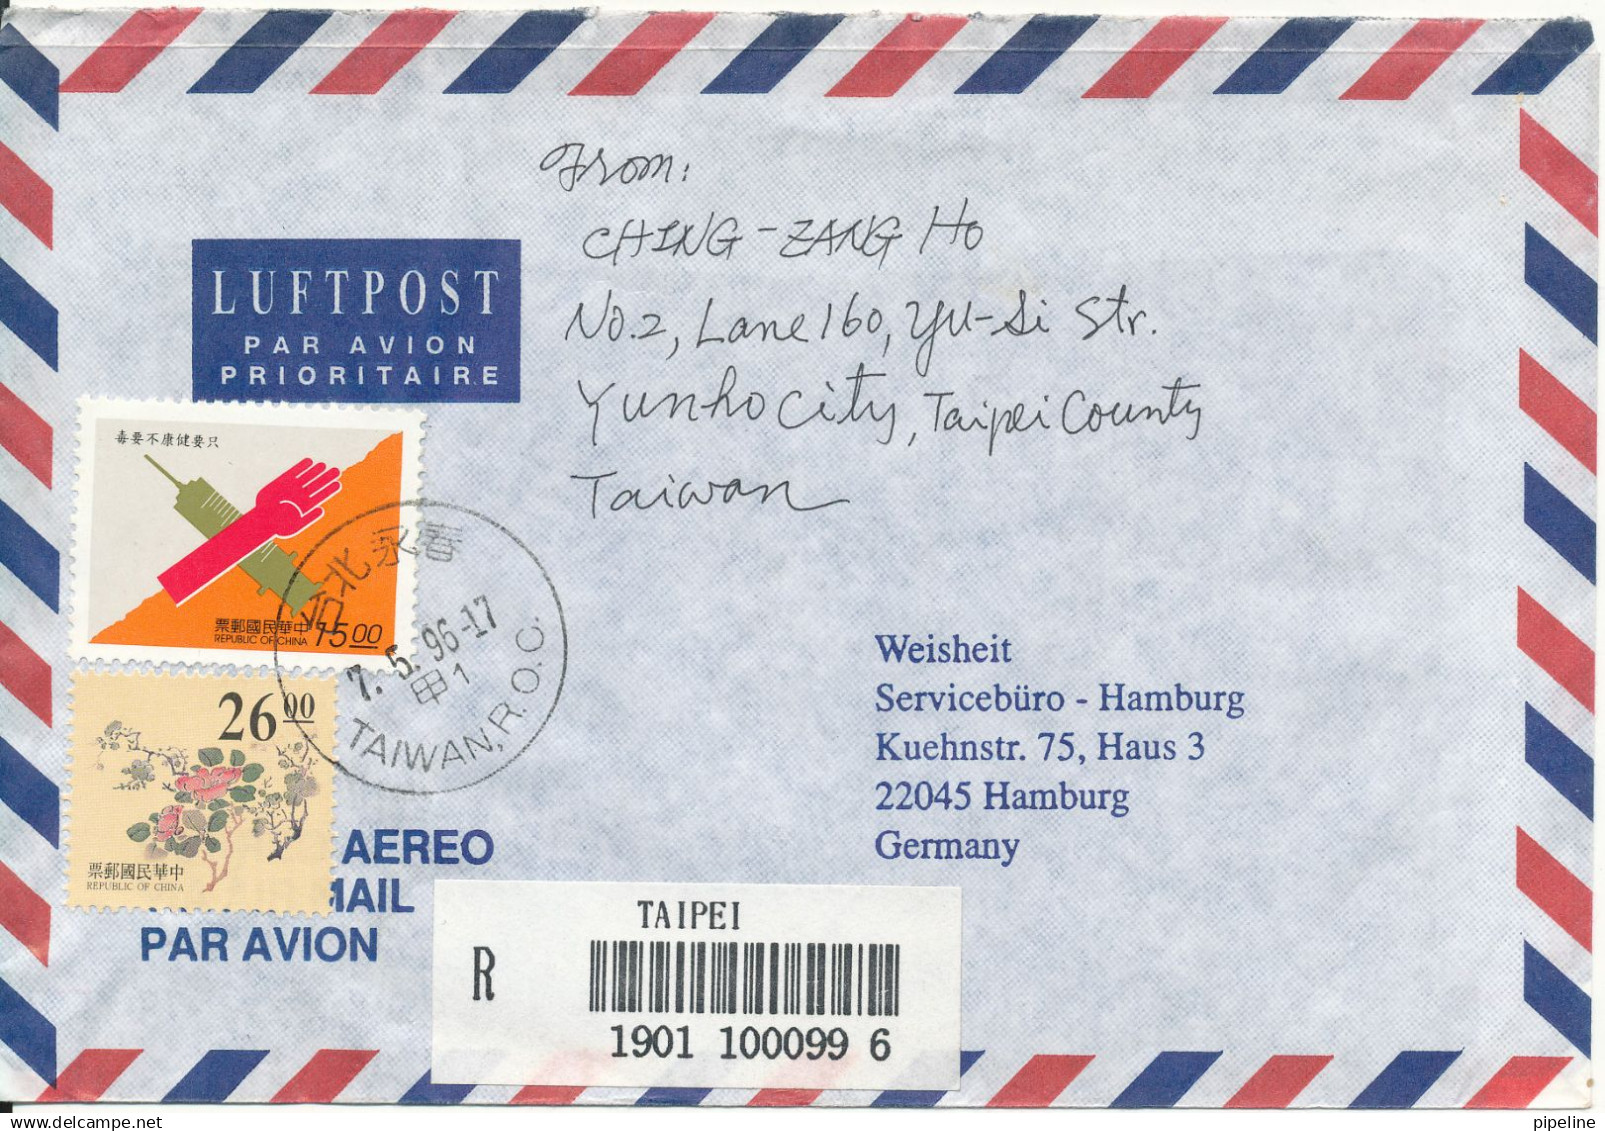 From:
CHING-ZANG HO
No.2, Lane 160, Yu-Si Str.
Yunho City, Taipei County
Taiwan
LUFTPOST
PAR AVION
PRIORITAIRE
毒要不康健要只
票郵國民華中
REPUBLIC OF CHINA
15.00
台北永春
7.5.96-17
甲1
TAIWAN, R.O.C.
26 00
票郵國民華中
REPUBLIC OF CHINA
Weisheit
Servicebüro - Hamburg
Kuehnstr. 75, Haus 3
22045 Hamburg
Germany
AEREO
MAIL
PAR AVION
TAIPEI
R
1901 100099 6
pipeline